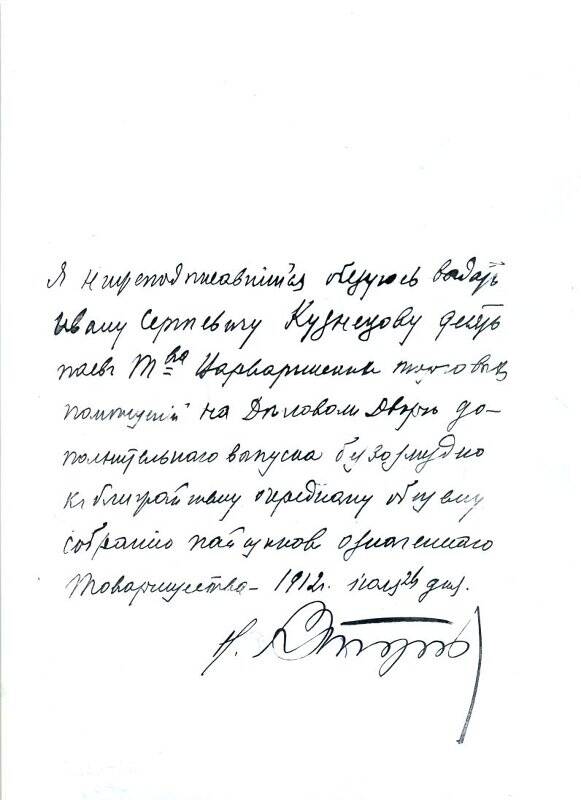 Я нижеподписавшійся обязуюсь выдать
Ивану Сергѣевичу Кузнецову десять
паевъ Т-ва Варваринскихъ торговыхъ
помѣщеній на Дѣловомъ Дворѣ до-
полнительнаго выпуска безвозмездно
къ ближайшему очередному общему
собранію пайщиковъ означеннаго
Товарищества – 1912 г. Іюля 24 дня.
Н.